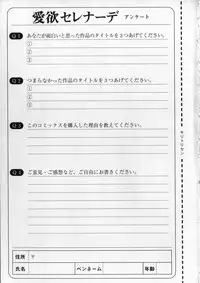 愛欲セレナーデ アンケート
Q1 あなたが面白いと思った作品のタイトルを3つあげてください。
①
②
③
Q2 つまらなかった作品のタイトルを3つあげてください。
①
②
③
Q3 このコミックスを購入した理由を教えてください。
Q4 ご意見・ご感想など、ご自由にお書きください。
住所 〒
氏名 ペンネーム 年齢